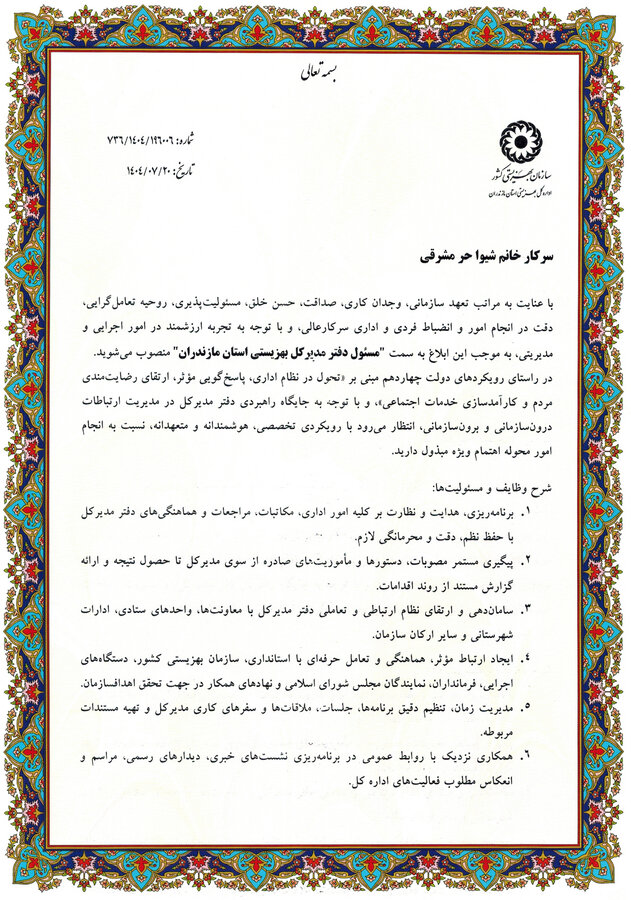 بسمه تعالی
شماره: ۷۳۶/۱۴۰۴/۱۹۶۰۰۶
تاریخ: ۱۴۰۴/۰۷/۲۰
سازمان بهزیستی کشور
اداره کل بهزیستی استان مازندران
سرکار خانم شیوا حر مشرقی
با عنایت به مراتب تعهد سازمانی، وجدان کاری، صداقت، حسن خلق، مسئولیت‌پذیری، روحیه تعامل‌گرایی،
دقت در انجام امور و انضباط فردی و اداری سرکارعالی، و با توجه به تجربه ارزشمند در امور اجرایی و
مدیریتی، به موجب این ابلاغ به سمت "مسئول دفتر مدیرکل بهزیستی استان مازندران" منصوب می‌شوید.
در راستای رویکردهای دولت چهاردهم مبنی بر «تحول در نظام اداری، پاسخ‌گویی مؤثر، ارتقای رضایت‌مندی
مردم و کارآمدسازی خدمات اجتماعی»، و با توجه به جایگاه راهبردی دفتر مدیرکل در مدیریت ارتباطات
درون‌سازمانی و برون‌سازمانی، انتظار می‌رود با رویکردی تخصصی، هوشمندانه و متعهدانه، نسبت به انجام
امور محوله اهتمام ویژه مبذول دارید.
شرح وظایف و مسئولیت‌ها:
۱. برنامه‌ریزی، هدایت و نظارت بر کلیه امور اداری، مکاتبات، مراجعات و هماهنگی‌های دفتر مدیرکل
با حفظ نظم، دقت و محرمانگی لازم.
۲. پیگیری مستمر مصوبات، دستورها و مأموریت‌های صادره از سوی مدیرکل تا حصول نتیجه و ارائه
گزارش مستند از روند اقدامات.
۳. سامان‌دهی و ارتقای نظام ارتباطی و تعاملی دفتر مدیرکل با معاونت‌ها، واحدهای ستادی، ادارات
شهرستانی و سایر ارکان سازمان.
۴. ایجاد ارتباط مؤثر، هماهنگی و تعامل حرفه‌ای با استانداری، سازمان بهزیستی کشور، دستگاه‌های
اجرایی، فرمانداران، نمایندگان مجلس شورای اسلامی و نهادهای همکار در جهت تحقق اهداف‌سازمان.
۵. مدیریت زمان، تنظیم دقیق برنامه‌ها، جلسات، ملاقات‌ها و سفرهای کاری مدیرکل و تهیه مستندات
مربوطه.
۶. همکاری نزدیک با روابط عمومی در برنامه‌ریزی نشست‌های خبری، دیدارهای رسمی، مراسم و
انعکاس مطلوب فعالیت‌های اداره کل.